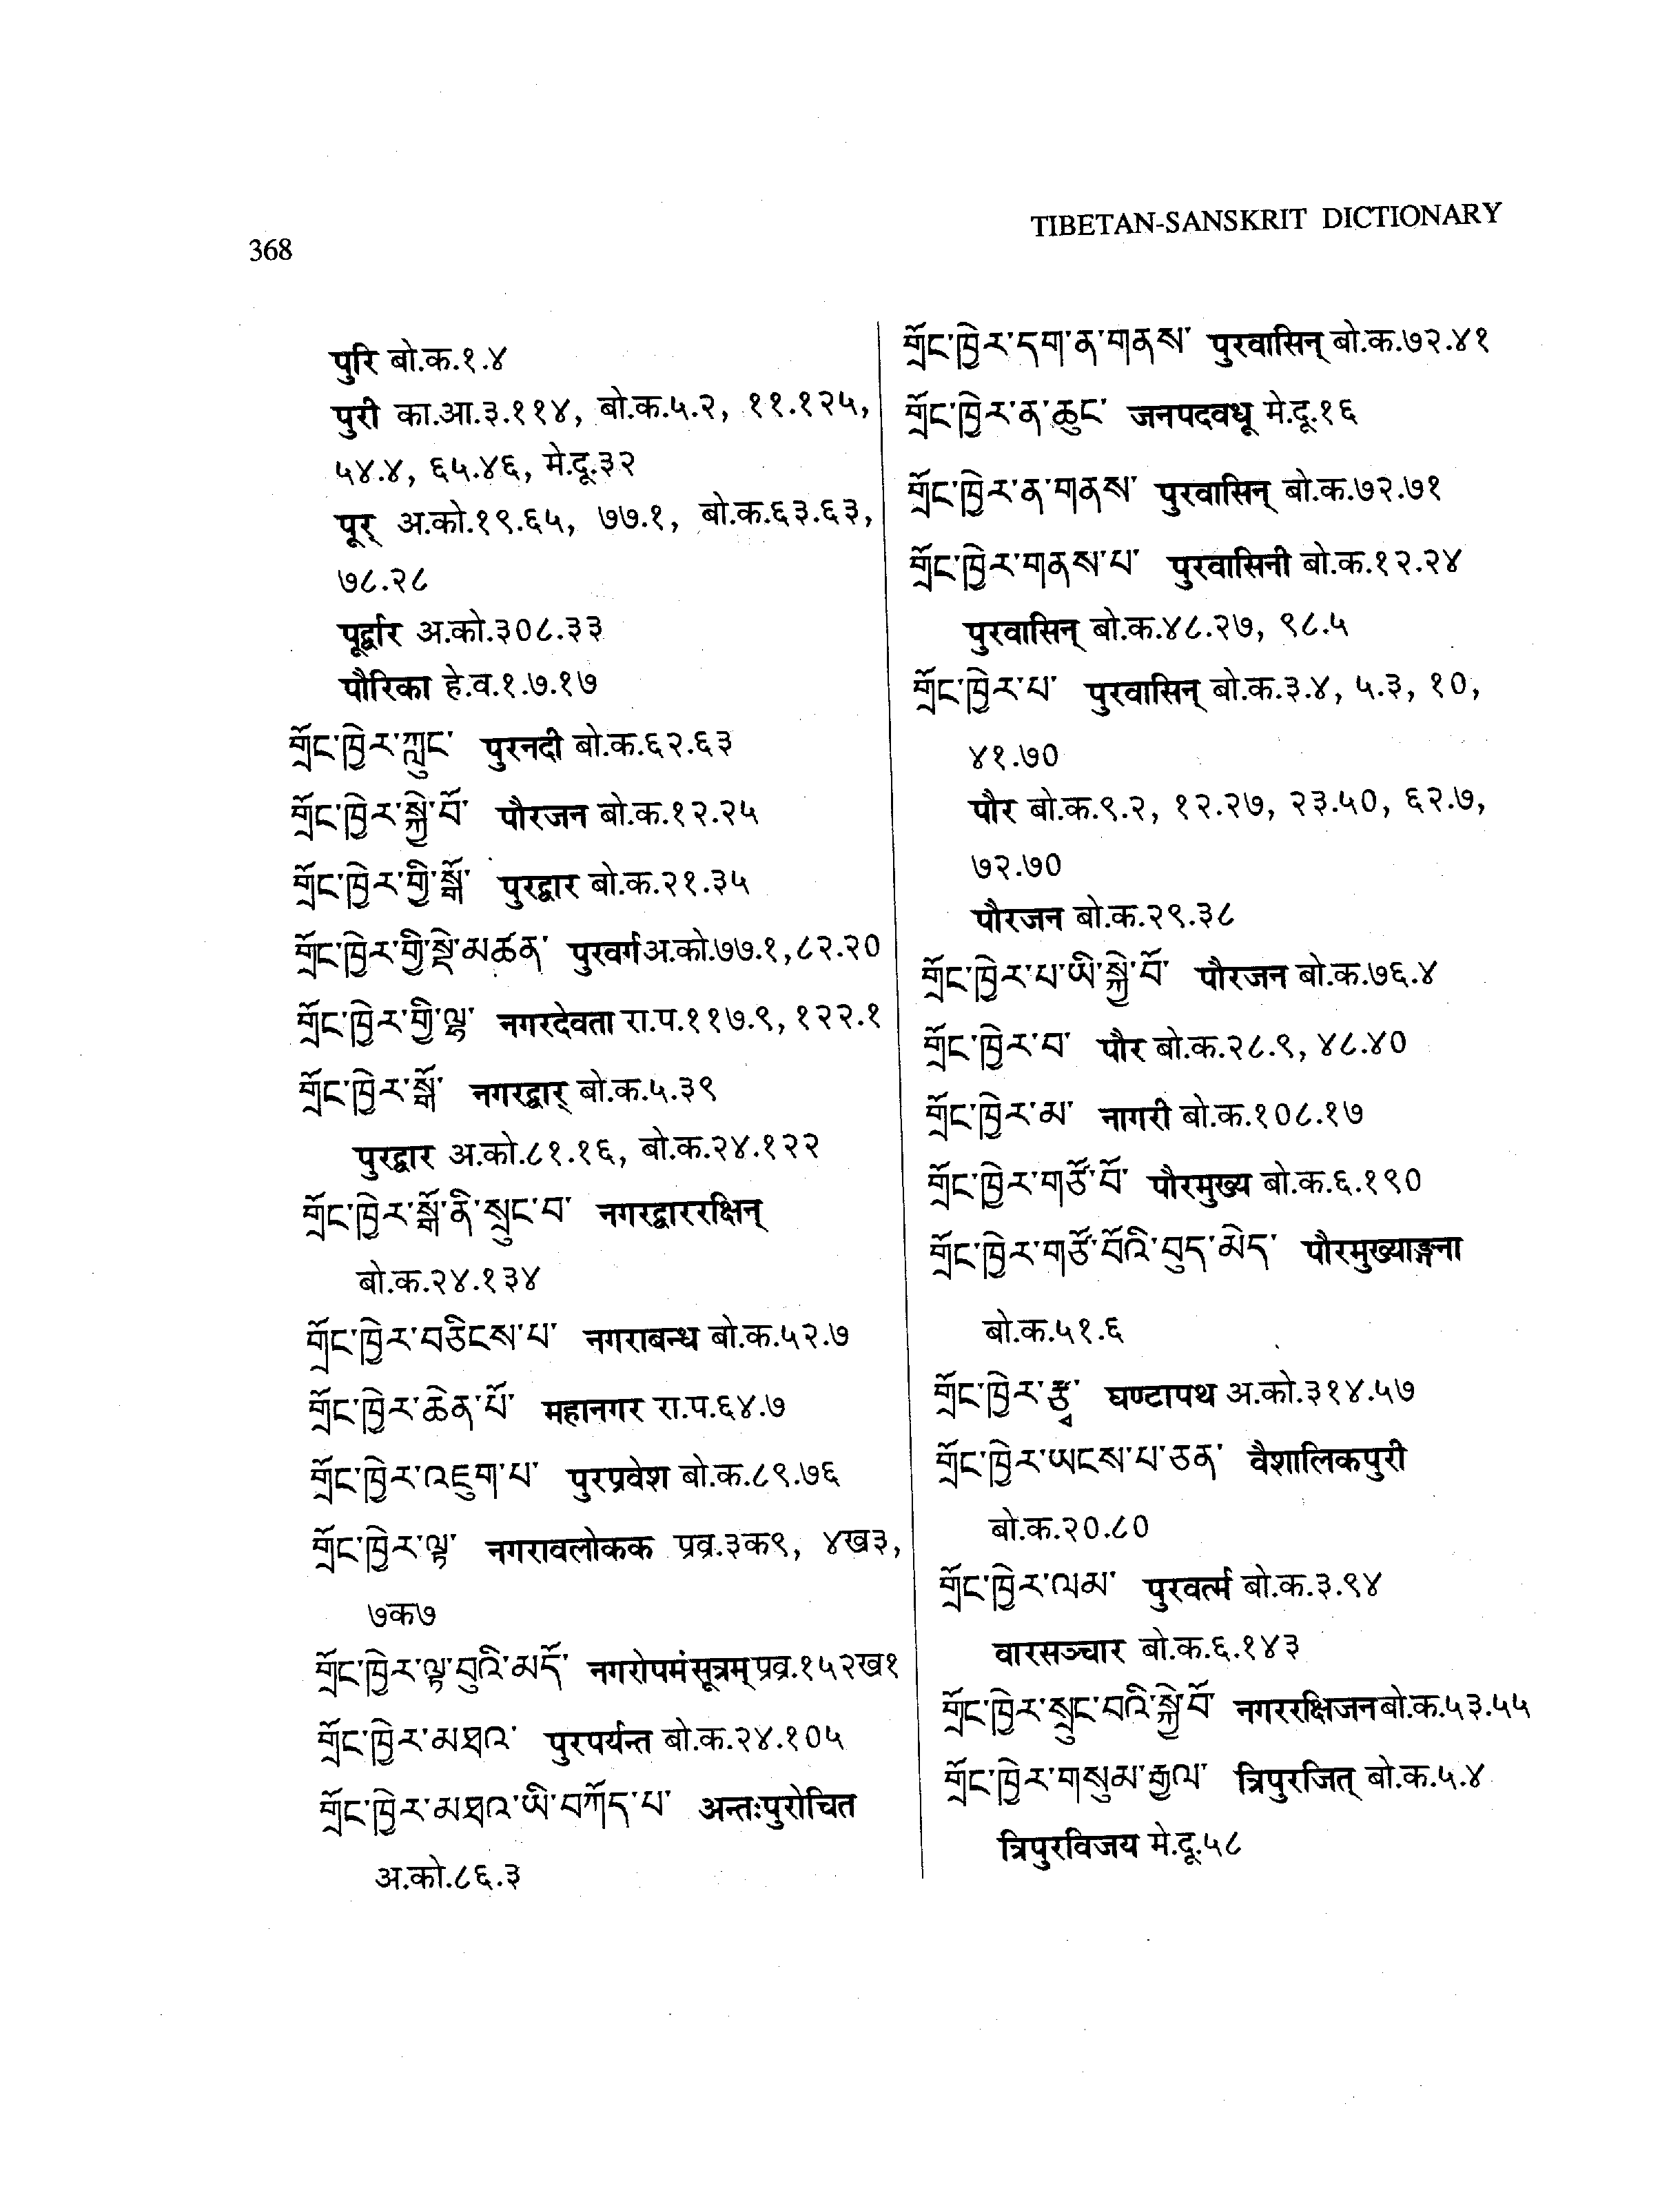 368
TIBETAN-SANSKRIT DICTIONARY
पुरि बो.क.१.४
पुरी का.आ.३.११४, बो.क.५.२, ११.१२५,
५४.४, ६५.४६, मे.दू.३२
पूर् अ.को.१९.६५, ७७.१, बो.क.६३.६३,
७८.२८
पूर्द्वार अ.को.३०८.३३
पौरिका हे.व.१.७.१७
གྲོང་ཁྱེར་ཀླུང་ पुरनदी बो.क.६२.६३
གྲོང་ཁྱེར་སྐྱེ་བོ་ पौरजन बो.क.१२.२५
གྲོང་ཁྱེར་གྱི་སྒོ་ पुरद्वार बो.क.२१.३५
གྲོང་ཁྱེར་གྱི་སྡེ་མཚན་ पुरवर्ग अ.को.७७.१,८२.२०
གྲོང་ཁྱེར་གྱི་ལྷ་ नगरदेवता रा.प.११७.९, १२२.१
གྲོང་ཁྱེར་སྒོ་ नगरद्वार् बो.क.५.३९
पुरद्वार अ.को.८१.१६, बो.क.२४.१२२
གྲོང་ཁྱེར་སྒོ་ནི་སྲུང་བ་ नगरद्वाररक्षिन्
बो.क.२४.१३४
གྲོང་ཁྱེར་བཅིངས་པ་ नगराबन्ध बो.क.५२.७
གྲོང་ཁྱེར་ཆེན་པོ་ महानगर रा.प.६४.७
གྲོང་ཁྱེར་འཇུག་པ་ पुरप्रवेश बो.क.८९.७६
གྲོང་ཁྱེར་ལྟ་ नगरावलोकक प्रव्र.३क९, ४ख३,
७क७
གྲོང་ཁྱེར་ལྟ་བུའི་མདོ་ नगरोपमंसूत्रम् प्रव्र.१५२ख१
གྲོང་ཁྱེར་མཐའ་ पुरपर्यन्त बो.क.२४.१०५
གྲོང་ཁྱེར་མཐའ་ཡི་བཀོད་པ་ अन्तःपुरोचित
अ.को.८६.३
གྲོང་ཁྱེར་དག་ན་གནས་ पुरवासिन् बो.क.७२.४१
གྲོང་ཁྱེར་ན་ཆུང་ जनपदवधू मे.दू.१६
གྲོང་ཁྱེར་ན་གནས་ पुरवासिन् बो.क.७२.७१
གྲོང་ཁྱེར་གནས་པ་ पुरवासिनी बो.क.१२.२४
पुरवासिन् बो.क.४८.२७, ९८.५
གྲོང་ཁྱེར་པ་ पुरवासिन् बो.क.३.४, ५.३, १०,
४१.७०
पौर बो.क.९.२, १२.२७, २३.५०, ६२.७,
७२.७०
पौरजन बो.क.२९.३८
གྲོང་ཁྱེར་པ་ཡི་སྐྱེ་བོ་ पौरजन बो.क.७६.४
གྲོང་ཁྱེར་བ་ पौर बो.क.२८.९, ४८.४०
གྲོང་ཁྱེར་མ་ नागरी बो.क.१०८.१७
གྲོང་ཁྱེར་གཙོ་བོ་ पौरमुख्य बो.क.६.१९०
གྲོང་ཁྱེར་གཙོ་བོའི་བུད་མེད་ पौरमुख्याङ्गना
बो.क.५१.६
གྲོང་ཁྱེར་རྩྭ་ घण्टापथ अ.को.३१४.५७
གྲོང་ཁྱེར་ཡངས་པ་ཅན་ वैशालिकपुरी
बो.क.२०.८०
གྲོང་ཁྱེར་ལམ་ पुरवर्त्म बो.क.३.९४
वारसञ्चार बो.क.६.१४३
གྲོང་ཁྱེར་སྲུང་བའི་སྐྱེ་བོ་ नगररक्षिजन बो.क.५३.५५
གྲོང་ཁྱེར་གསུམ་རྒྱལ་ त्रिपुरजित् बो.क.५.४
त्रिपुरविजय मे.दू.५८